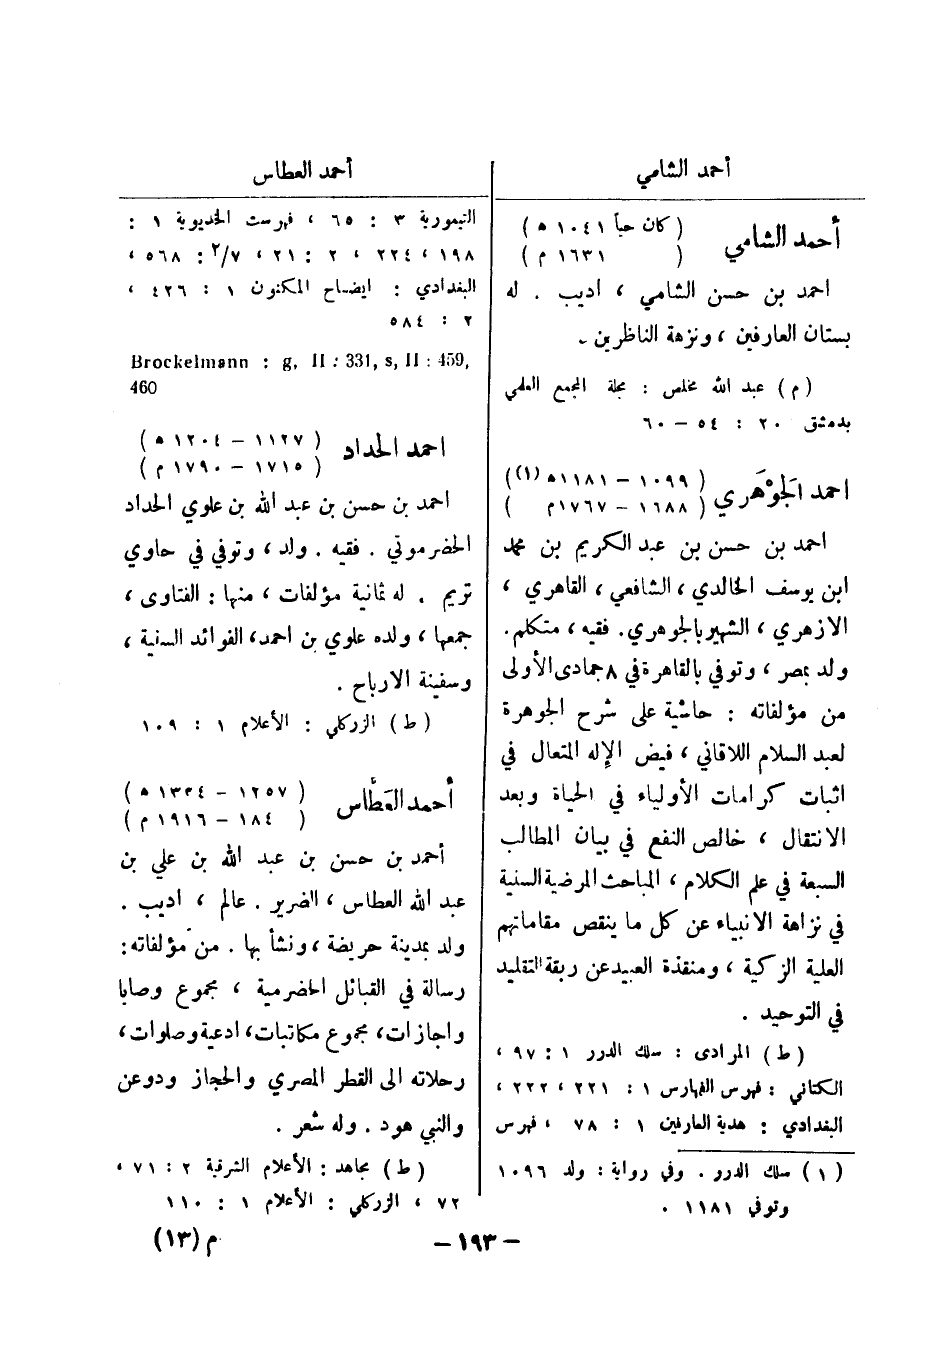 أحمد الشامي
أحمد الشامي
( كان حياً ١٠٤١ ه )
( ١٦٣١ م )
احمد بن حسن الشامي ، أديب . له
بستان العارفين ، ونزهة الناظرين .
( م ) عبد الله مخلص : مجلة المجمع العلمي
بدمشق ٢٠ : ٥٤ – ٦٠
احمد الجَوْهَري
( ١٠٩٩ – ١١٨١ه (١) )
( ١٦٨٨ – ١٧٦٧م )
احمد بن حسن بن عبد الكريم بن محمد
ابن يوسف الخالدي ، الشافعي ، القاهري ،
الازهري ، الشهير بالجوهري. فقيه ، متكلم.
ولد بمصر ، وتوفي بالقاهرة في ٨ جمادى الأولى
من مؤلفاته : حاشية على شرح الجوهرة
لعبد السلام اللاقاني ، فيض الإله المتعال في
اثبات كرامات الأولياء في الحياة وبعد
الانتقال ، خالص النفع في بيان المطالب
السبعة في علم الكلام ، المباحث المرضية السنية
في نزاهة الانبياء عن كل ما ينقص مقاماتهم
العلية الزكية ، ومنقذة العبيد عن ربقة التقليد
في التوحيد .
( ط ) المرادى : سلك الدرر ١ : ٩٧ ،
الكتاني : فهرس الفهارس ١ : ٢٢١ ، ٢٢٢ ،
البغدادي : هدية العارفين ١ : ٧٨ ، فهرس
( ١ ) سلك الدرر . وفي رواية : ولد ١٠٩٦
وتوفي ١١٨١ .
أحمد العطاس
التيمورية ٣ : ٦٥ ، فهرست الخديوية ١ :
١٩٨ ، ٢٢٤ ، ٢ : ٢١ ، ٧/٢ : ٥٦٨ ،
البغدادي : ايضاح المكنون ١ : ٤٢٦ ،
٢ : ٥٨٤
Brockelmann : g, II : 331, s, II : 459,
460
احمد الحداد
( ١١٢٧ – ١٢٠٤ ه )
( ١٧١٥ – ١٧٩٠ م )
احمد بن حسن بن عبد الله بن علوي الحداد
الحضرموتي . فقيه . ولد ، وتوفي في حاوي
تريم . له ثمانية مؤلفات ، منها : الفتاوى ،
جمعها ، ولده علوي بن احمد، الفوائد السنية ،
وسفينة الارباح .
( ط ) الزركلي : الأعلام ١ : ١٠٩
أحمد العَطّاس
( ١٢٥٧ – ١٣٣٤ ه )
( ١٨٤ – ١٩١٦ م )
أحمد بن حسن بن عبد الله بن علي بن
عبد الله العطاس ، الضرير . عالم ، أديب .
ولد بمدينة حريضة ، ونشأ بها . من مؤلفاته:
رسالة في القبائل الحضرمية ، مجموع وصايا
واجازات، مجموع مكاتبات، ادعية وصلوات،
رحلاته الى القطر المصري والحجاز ودوعن
والنبي هود . وله شعر .
( ط ) مجاهد : الأعلام الشرقية ٢ : ٧١ ،
٧٢ ، الزركلي : الأعلام ١ : ١١٠
– ١٩٣ –
م (١٣)